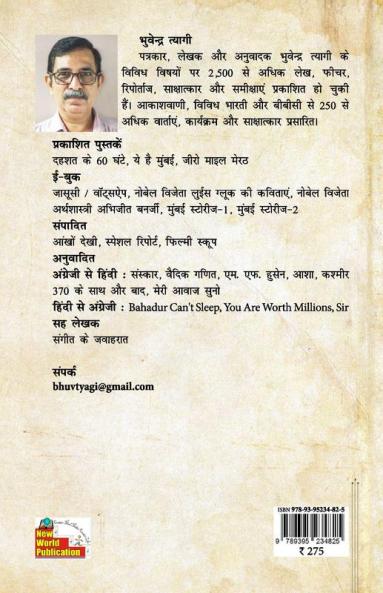 भुवेन्द्र त्यागी
पत्रकार, लेखक और अनुवादक भुवेन्द्र त्यागी के
विविध विषयों पर 2,500 से अधिक लेख, फीचर,
रिपोर्ताज, साक्षात्कार और समीक्षाएं प्रकाशित हो चुकी
हैं। आकाशवाणी, विविध भारती और बीबीसी से 250 से
अधिक वार्ताएं, कार्यक्रम और साक्षात्कार प्रसारित।
प्रकाशित पुस्तकें
दहशत के 60 घंटे, ये है मुंबई, जीरो माइल मेरठ
ई-बुक
जासूसी / वॉट्सऐप, नोबेल विजेता लुईस ग्लूक की कविताएं, नोबेल विजेता
अर्थशास्त्री अभिजीत बनर्जी, मुंबई स्टोरीज-1, मुंबई स्टोरीज-2
संपादित
आंखों देखी, स्पेशल रिपोर्ट, फिल्मी स्कूप
अनुवादित
अंग्रेजी से हिंदी : संस्कार, वैदिक गणित, एम. एफ. हुसेन, आशा, कश्मीर
370 के साथ और बाद, मेरी आवाज सुनो
हिंदी से अंग्रेजी : Bahadur Can't Sleep, You Are Worth Millions, Sir
सह लेखक
संगीत के जवाहरात
संपर्क
bhuvtyagi@gmail.com
ISBN 978-93-95234-82-5
9 789395 234825
₹ 275
New
World
Publication